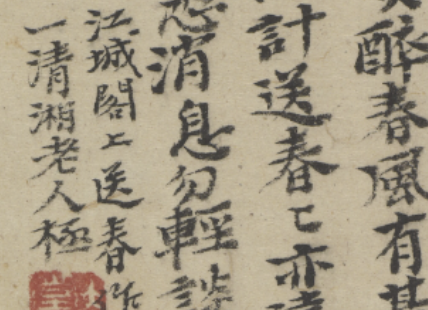 醉春風有甚
計送春亡亦
消息勿輕談
江城閣上送春作
一清湘老人極